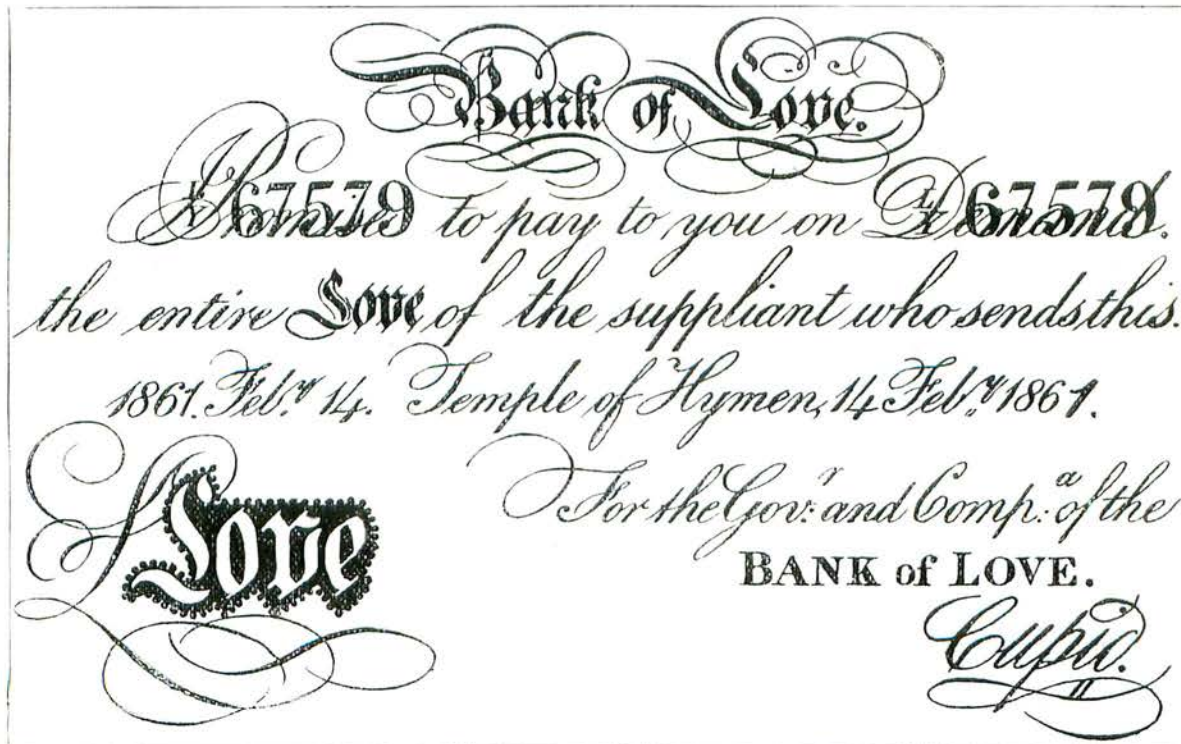 Bank of Love.
I Promise to pay to you on Demand.
№ 67579 № 67579
the entire Love of the suppliant who sends this.
1861. Feb.ry 14. Temple of Hymen, 14 Feb.ry 1861.
For the Gov.r and Comp.a of the
BANK of LOVE.
Love
Cupid.